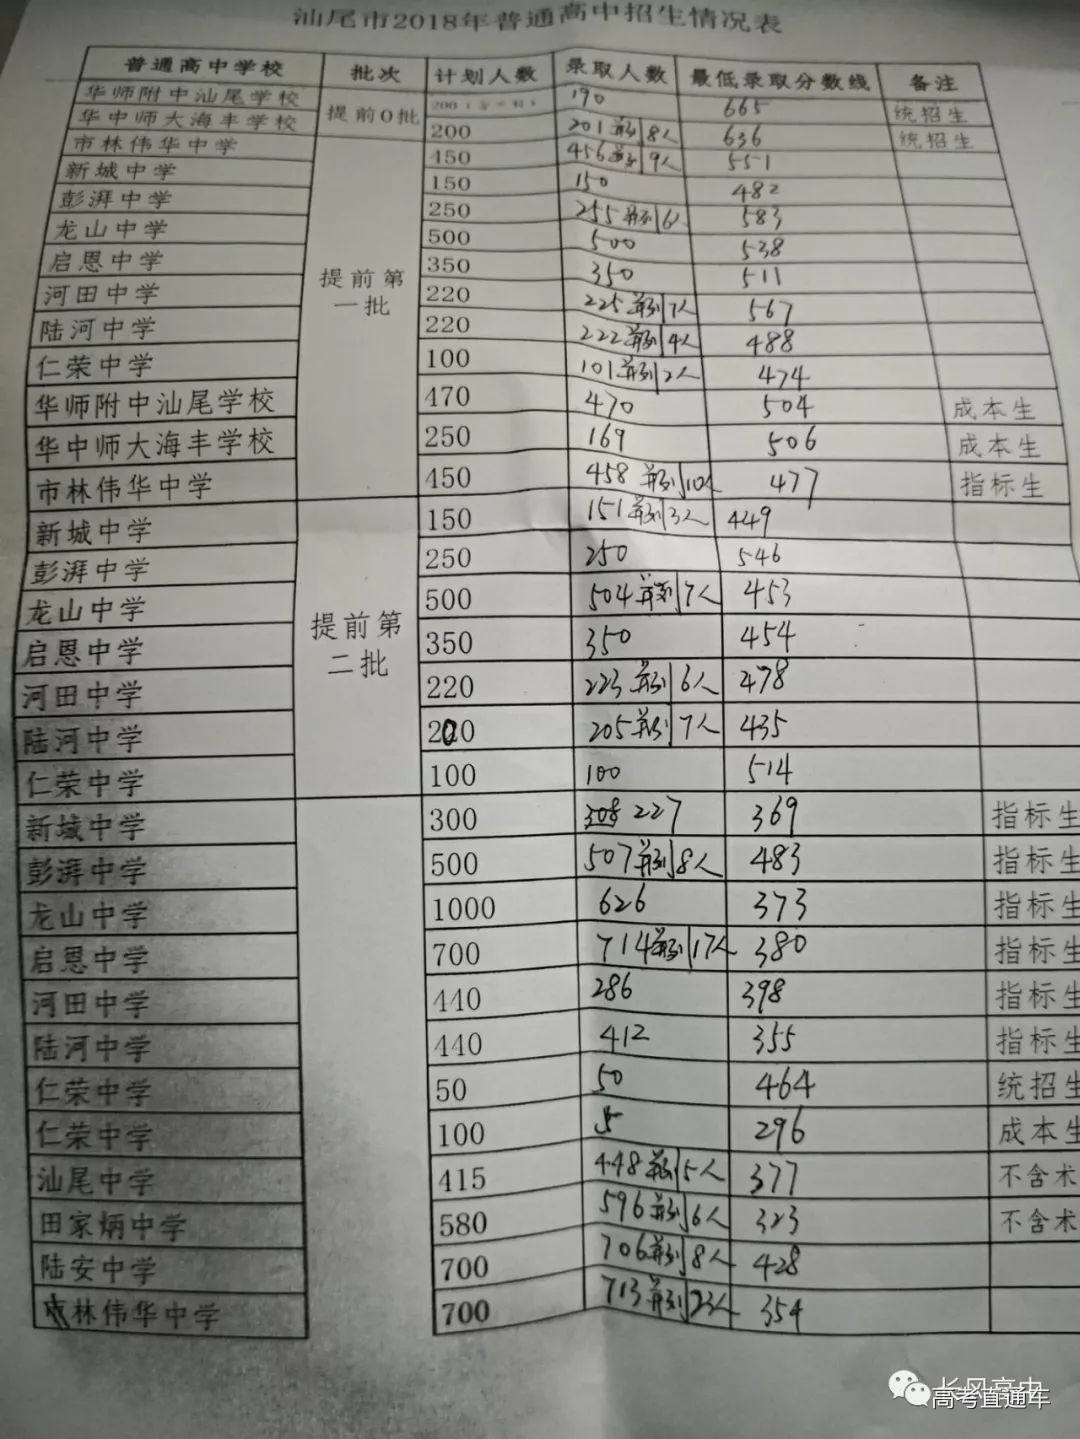 汕尾市2018年普通高中招生情况表
普通高中学校 批次 计划人数 录取人数 最低录取分数线 备注
华师附中汕尾学校 提前0批 200 190 665 统招生
华中师大海丰学校 200 201 并列8人 636 统招生
市林伟华中学 提前第一批 450 456 并列9人 551
新城中学 150 150 482
彭湃中学 250 255 并列6人 583
龙山中学 500 500 538
启恩中学 350 350 511
河田中学 220 225 并列7人 567
陆河中学 220 222 并列4人 488
仁荣中学 100 101 并列2人 474
华师附中汕尾学校 470 470 504 成本生
华中师大海丰学校 250 169 506 成本生
市林伟华中学 450 458 并列10人 477 指标生
新城中学 提前第二批 150 151 并列3人 449
彭湃中学 250 250 546
龙山中学 500 504 并列7人 453
启恩中学 350 350 454
河田中学 220 223 并列6人 478
陆河中学 200 205 并列7人 435
仁荣中学 100 100 514
新城中学 300 308 227 369 指标生
彭湃中学 500 507 并列8人 483 指标生
龙山中学 1000 626 373 指标生
启恩中学 700 714 并列17人 380 指标生
河田中学 440 286 398 指标生
陆河中学 440 412 355 指标生
仁荣中学 50 50 464 统招生
仁荣中学 100 5 296 成本生
汕尾中学 415 448 并列5人 377 不含术
田家炳中学 580 596 并列6人 323 不含术
陆安中学 700 706 并列8人 428
市林伟华中学 700 713 并列23人 354
长风高中
高考直通车